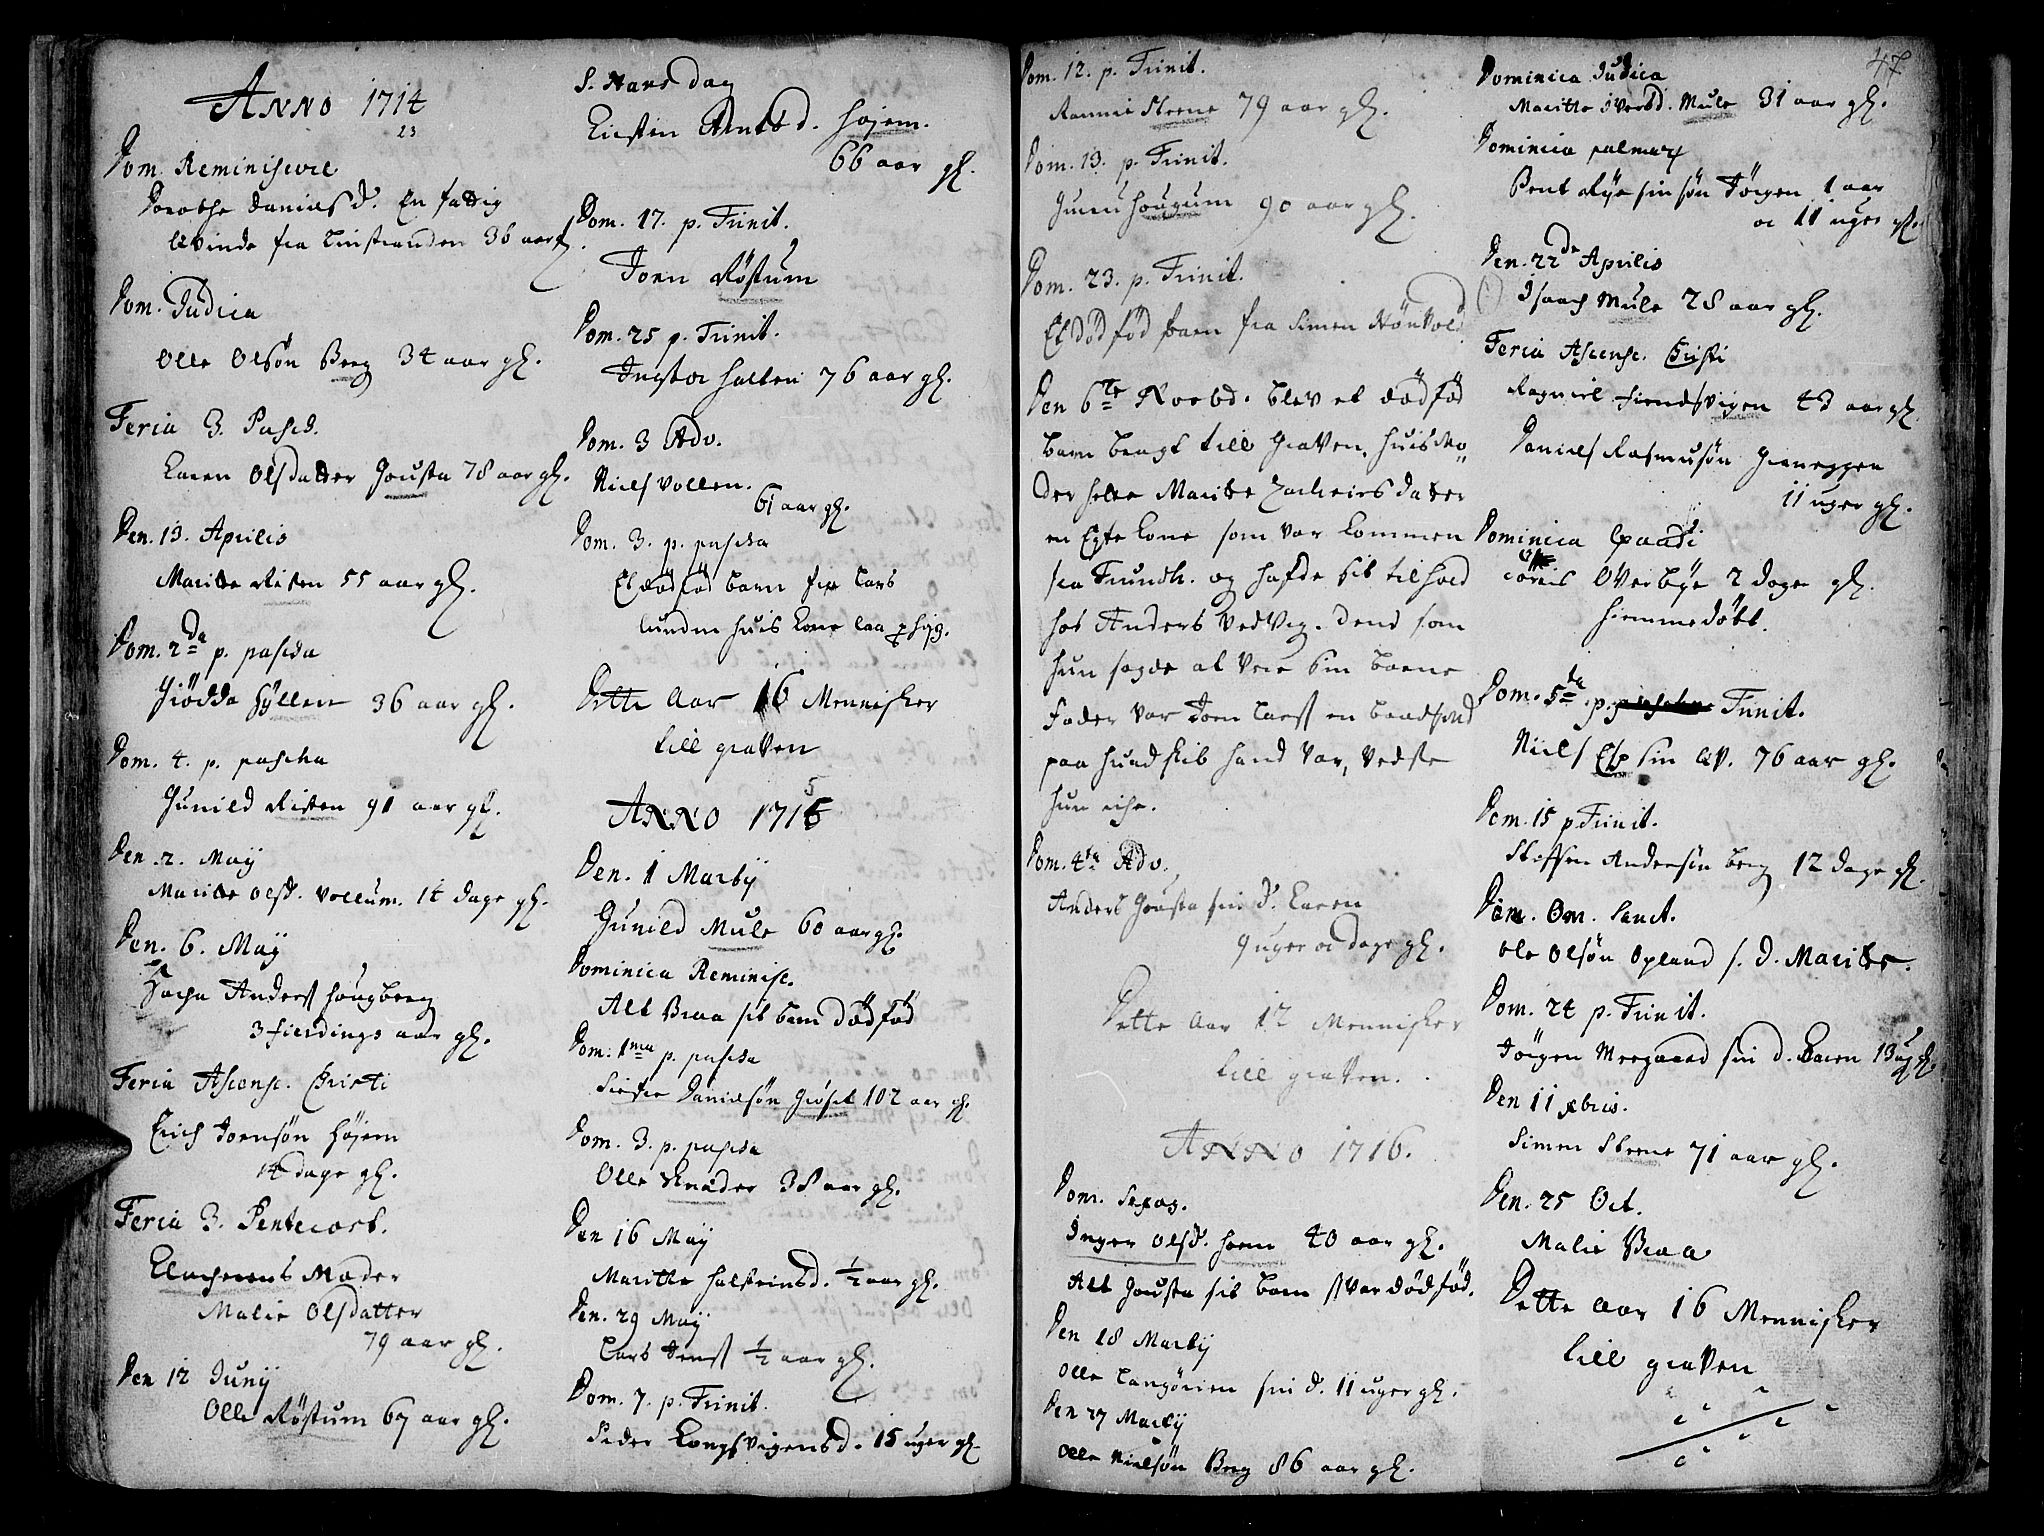 ANNO 1714
23
Dom. Reminiscere
Dorothe Daniels d. En fattig
qvinde fra Linstranden 36 aar gl.
Dom. Judica
Olle Olsøn Berg 34 aar gl.
Feria 3. Pasch.
Karen Olsdatter Jousta 78 aar gl.
Den. 13. Aprilis
Maritte Risten 55 aar gl.
Dom. 2da p. pascha
Giødda Hÿllen 36 aar gl.
Dom. 4. p. pascha
Gunild Risten 91 aar gl.
Den. 2. Maÿ
Maritte Olsd. Vollum. 14 dage gl.
Den. 6. Maÿ
Anders Hougberg
3 fierdings aar gl.
Feria Ascens. Christi
Erich Joensøn Højem
14 dage gl.
Feria 3. Pentecost.
Klocherens Moder
Malie Olsdatter
79 aar gl.
Den 12 Junÿ
Olle Røstum 67 aar gl.
S. Hans dag
Kirsten Arntsd. Højem.
66 aar gl.
Dom. 17. p. Trinit.
Joen Røstum
Dom. 25 p. Trinit.
Ingebor Halten 76 aar gl.
Dom. 3 Adv.
Niels Vollen.
61 aar gl.
Dom. 3. p. pascha
Et dødfød barn fra Lars
Lunden huis Kone laa
Dette Aar 16 Mennisker
till graven
ANNO 1715
Den. 1 Martÿ
Gunild Mule 60 aar gl.
Dominica Reminisc.
Alt Braa sit barn dødfød
Dom: 1ma p. pascha
Danielsøn Giøset 102 aar gl.
Dom. 3. p. pascha
Olle Sknøder 38 aar gl.
Den 16 Maÿ
Maritte Halsteinsd. ½ aar gl.
Den. 29 Maÿ
Lars Jens ½ aar gl.
Dom. 7. p. Trinit.
Peder Longsvigens d. 15 uger gl.
Dom. 12. p. Trinit.
Steene 79 aar gl.
Dom. 13. p. Trinit.
Hougum 90 aar gl.
Dom. 23. p. Trinit.
Et dødfød barn fra Simen Rønvold
Den 6te Novbd. blev et dødfød
barn bragt till Graven, huis Mo,,
der hette Maritte Zachrisdatter
en Egte Kone som var kommen
fra Trundh. og hafde sit tilhold
hos Anders Vedvig. Dend som
hun sagde at vere sin barne
fader var Joen Larss en baadsmd
paa huad skib hand var, vedste
hun iche.
Dom. 4ta Adv.
Anders Jousta sin d. Karen
9 uger oc dage gl.
Dette Aar 12 Mennisker
till graven.
ANNO 1716.
Dom. Sexag.
Inger Olsd. Hoem 40 aar gl.
Alt Jousta sit barn som var dødfød.
Den 18 Martÿ
Olle Langørien sin d. 11 uger gl.
Den 27 Martÿ
Olle Nielsøn Berg 86 aar gl.
47
Dominica Judica
Maritte Iversd. Mule 31 aar gl.
Dominica palmar
Bent Rye sin søn Jørgen 1 aar
oc 11 uger gl.
Den. 22de Aprilis
Isaach Mule 28 aar gl.
Feria Ascens. Christi
Ragniel Hiendsvigen 43 aar gl.
Daniels Rasmusøn Greneggen
11 uger gl.
Dominica Exaudi
Overbÿe 2 dage gl.
hiemmedøbt.
Dom. 5ta p. Trinit.
Niels Esp sin qv. 76 aar gl.
Dom. 15 p Trinit.
Steffen Andersøn berg 12 dage gl.
Dom. Om. Sanct.
Ole Olsøn Opland s. d. Maritte.
Dom. 24 p. Trinit.
Jørgen Meegaard sin d. Karen 13 ug gl.
Den 11 xbris.
Simen Steene 71 aar gl.
Den. 25 Oct.
Malie Braa
Dette Aar 16 Mennisker
till graven